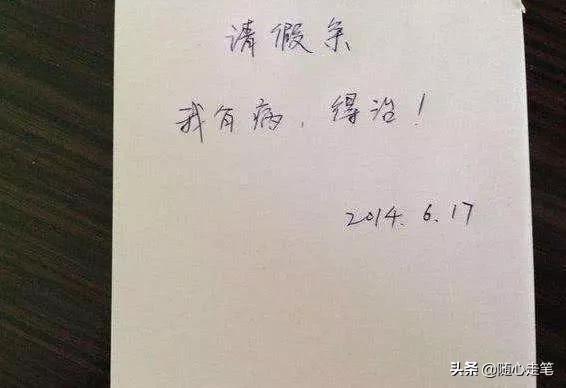 请假条
我有病，得治！
2014.6.17
头条 @随心走笔